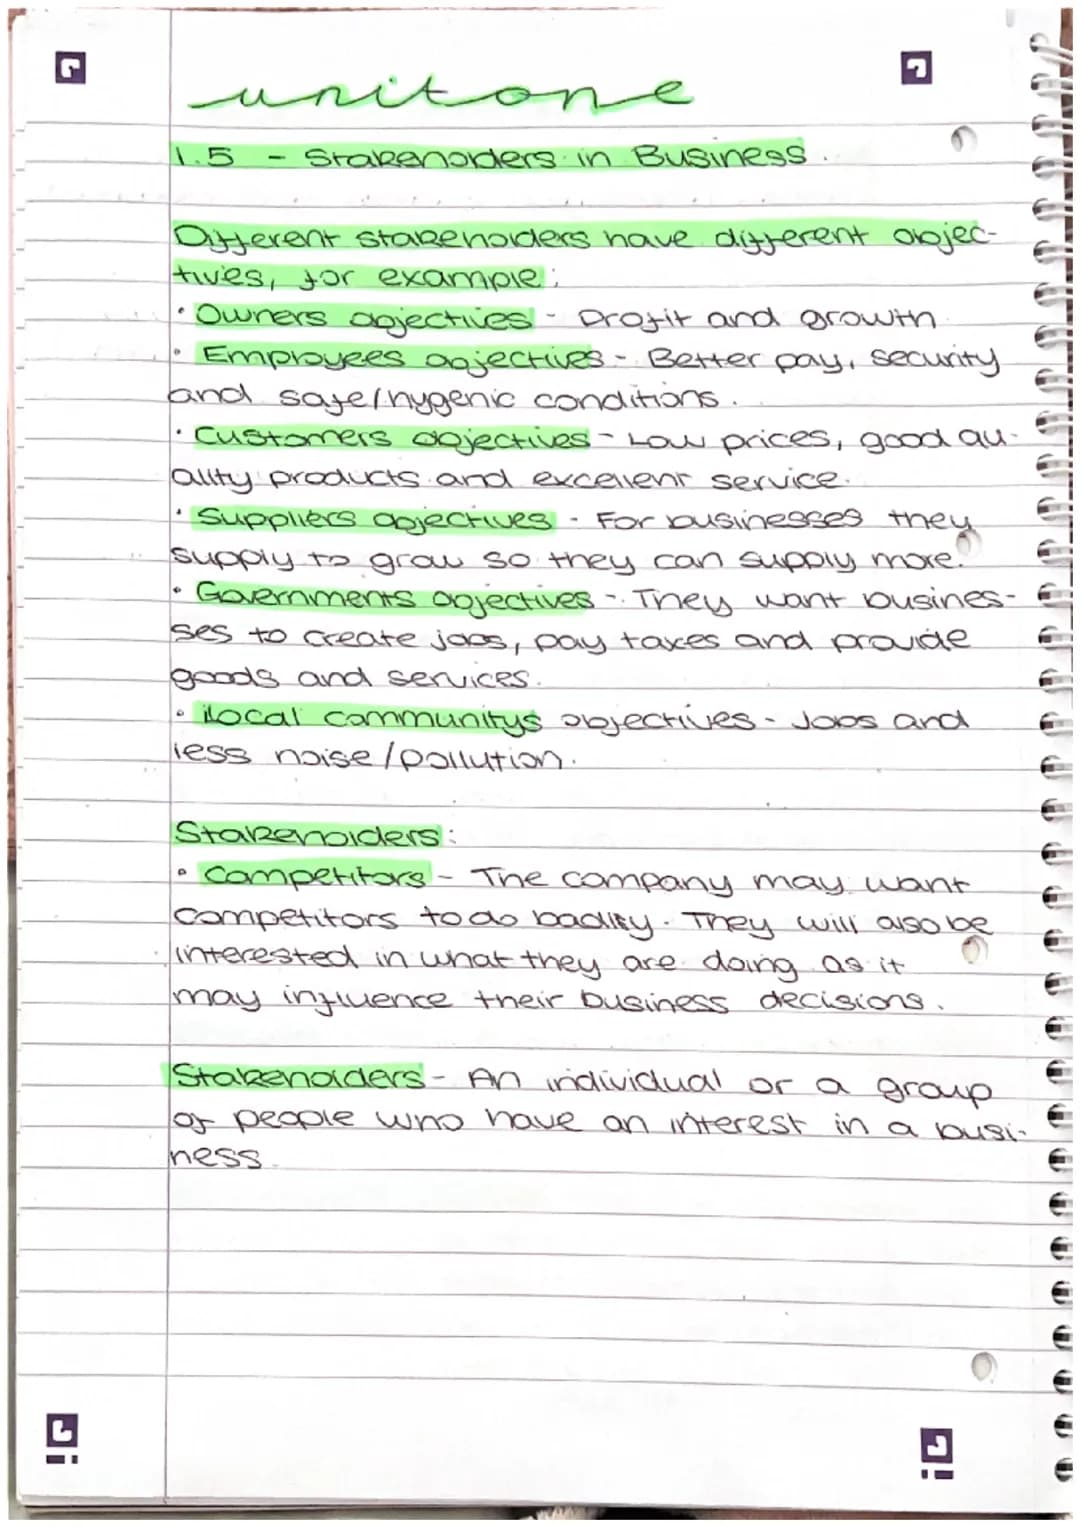 unit one
1.5 - Stakeholders in Business.
Different stakeholders have different objec-
tives, for example:
• Owners objectives - Profit and growth
• Employees objectives - Better pay, security
and safe/hygenic conditions.
• Customers objectives - Low prices, good qu-
ality products and excellent service.
• Suppliers objectives - For businesses they
supply to grow so they can supply more.
• Governments objectives - They want busines-
ses to create jobs, pay taxes and provide
goods and services.
• local communitys objectives - Jobs and
less noise/pollution.
Stakeholders:
• Competitors - The company may want
competitors to do badly. They will also be
interested in what they are doing as it
may influence their business decisions.
Stakeholders - An individual or a group
of people who have an interest in a busi-
ness.